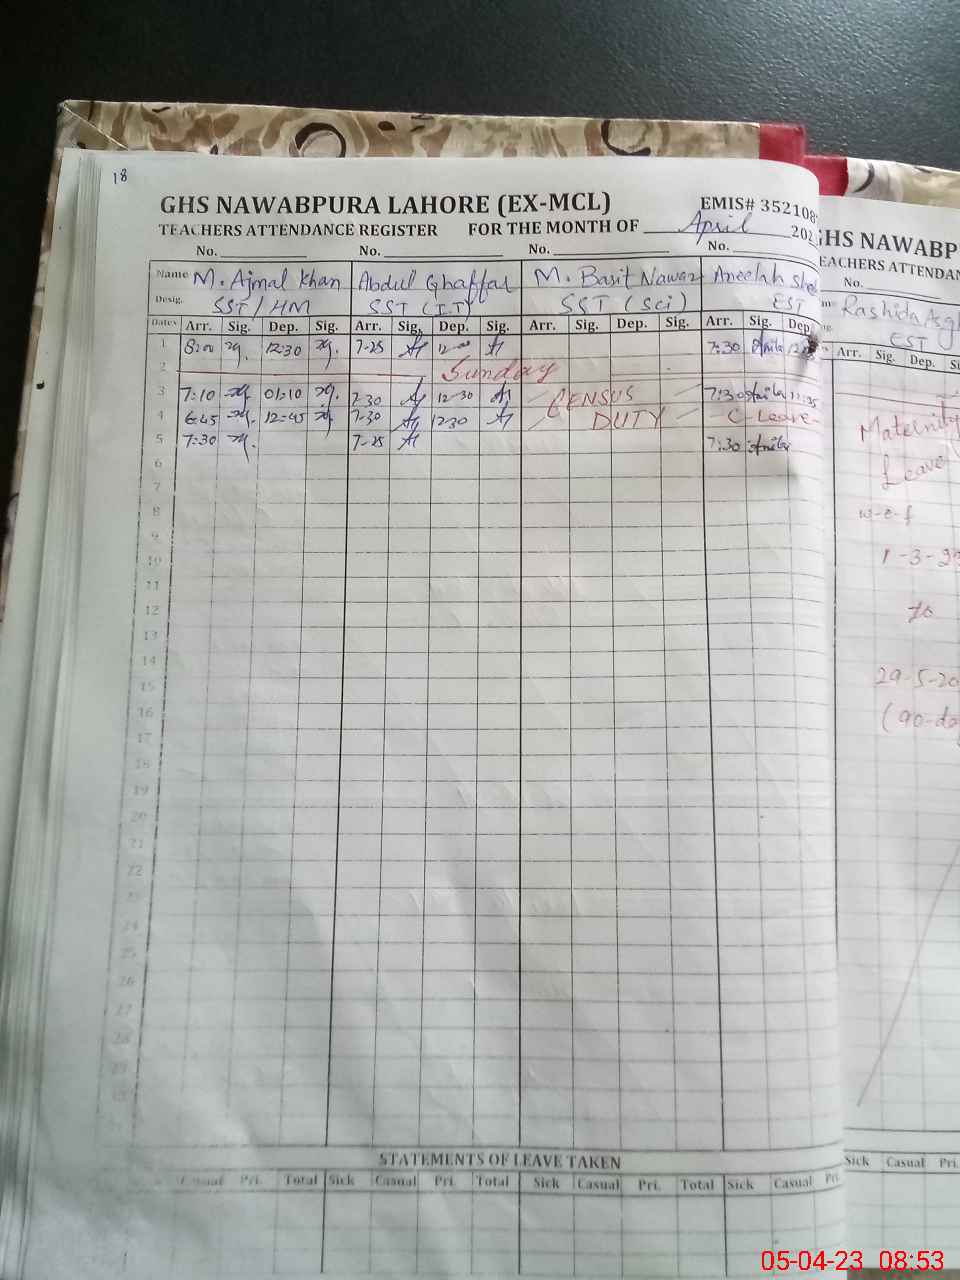 18
GHS NAWABPURA LAHORE (EX-MCL) EMIS# 352108
TEACHERS ATTENDANCE REGISTER FOR THE MONTH OF April 202
No. No. No. No.
Name M. Ajmal Khan Abdul Ghaffar M. Basit Nawaz Aneelah
Desig. SST/HM SST (I.T) SST (Sci) EST
Dates Arr. Sig. Dep. Sig. Arr. Sig. Dep. Sig. Arr. Sig. Dep. Sig. Arr. Sig. Dep.
1 8:00 12:30 7-25 7:30
2 Sunday
3 7:10 01:10 7-30 12-30 CENSUS 7:30
4 6:45 12-45 7-30 12-30 DUTY C-Leave
5 7:30 7-25 7:30
6
7
8
9
10
11
12
13
14
15
16
17
18
19
20
21
22
23
24
25
26
27
28
STATEMENTS OF LEAVE TAKEN
Casual Pri. Total Sick Casual Pri. Total Sick Casual Pri. Total Sick Casual Pri.
GHS NAWABP
TEACHERS ATTENDAN
No.
Rashida Asg
EST
Arr. Sig. Dep.
Maternity
Leave
w-e-f
1-3-23
to
29-5-20
(90-da
Sick Casual Pri.
05-04-23 08:53